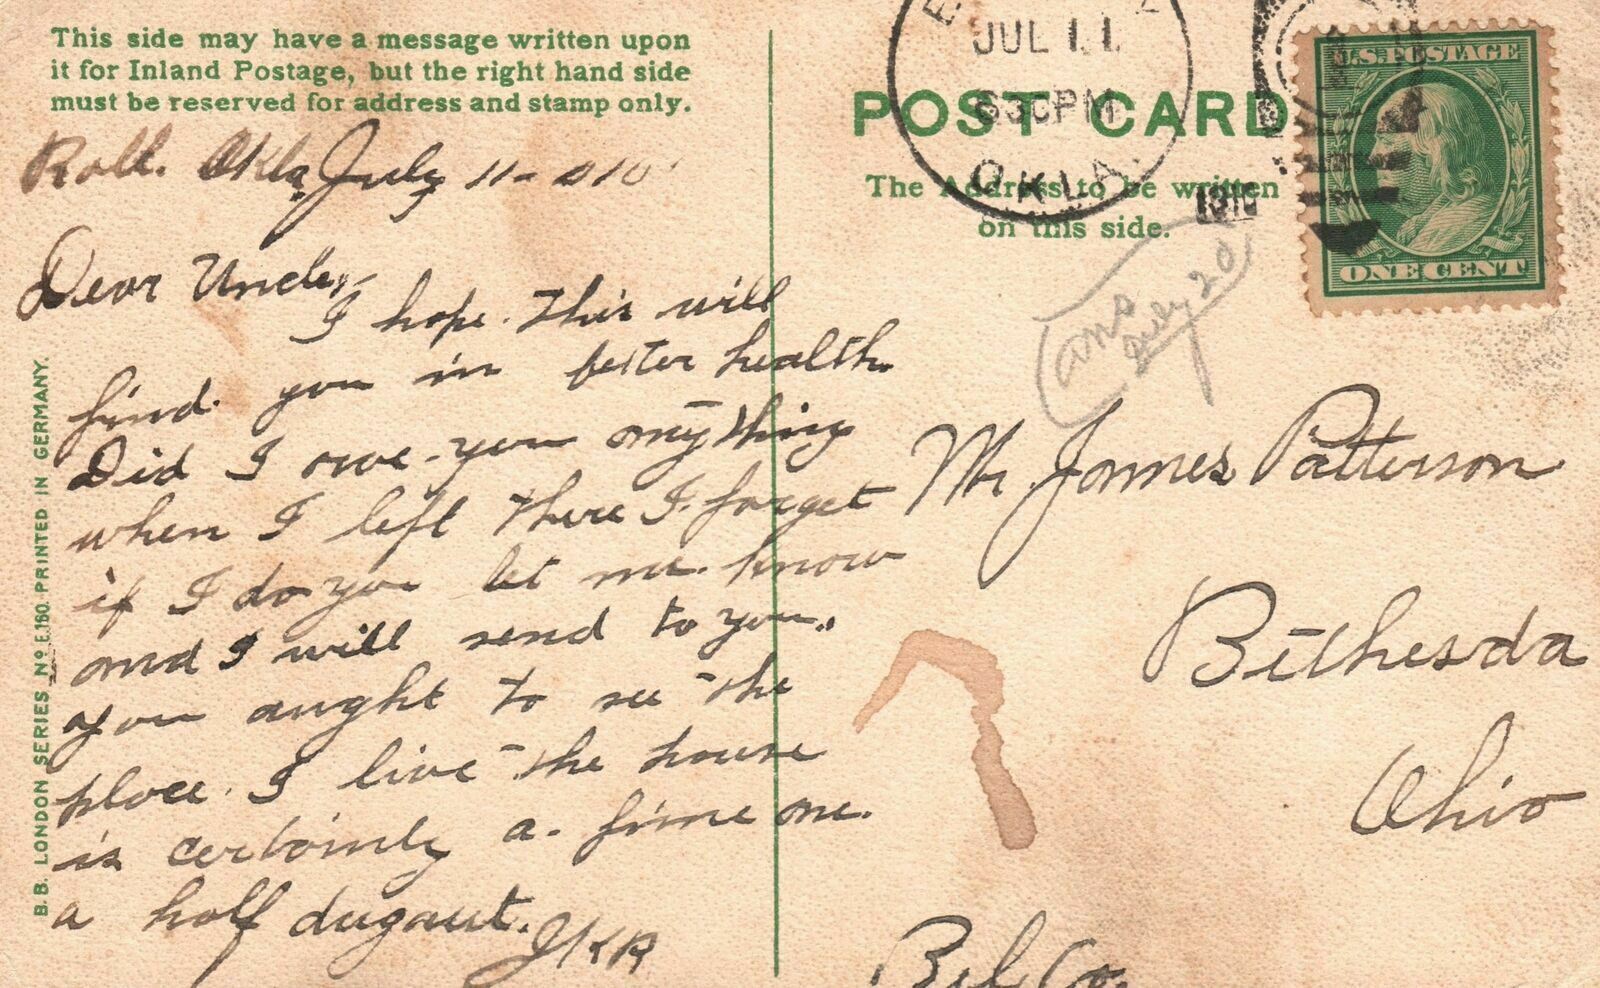 This side may have a message written upon
it for Inland Postage, but the right hand side
must be reserved for address and stamp only.
Roll. Okla July 11-010
Dear Uncle,
I hope this will
find you in better health.
Did I owe you anything
when I left there I forget
if I do you let me know
and I will send to you.
you aught to see the
place I live the house
is certainly a fine one.
a half dugout.
JKR
B.B. LONDON SERIES No E.160. PRINTED IN GERMANY.
POST CARD
The Address to be written
on this side.
JUL 11
630PM
OKLA.
1910
U.S. POSTAGE
ONE CENT
ans
July 20
Mr James Patterson
Bethesda
Ohio
Bel Co.